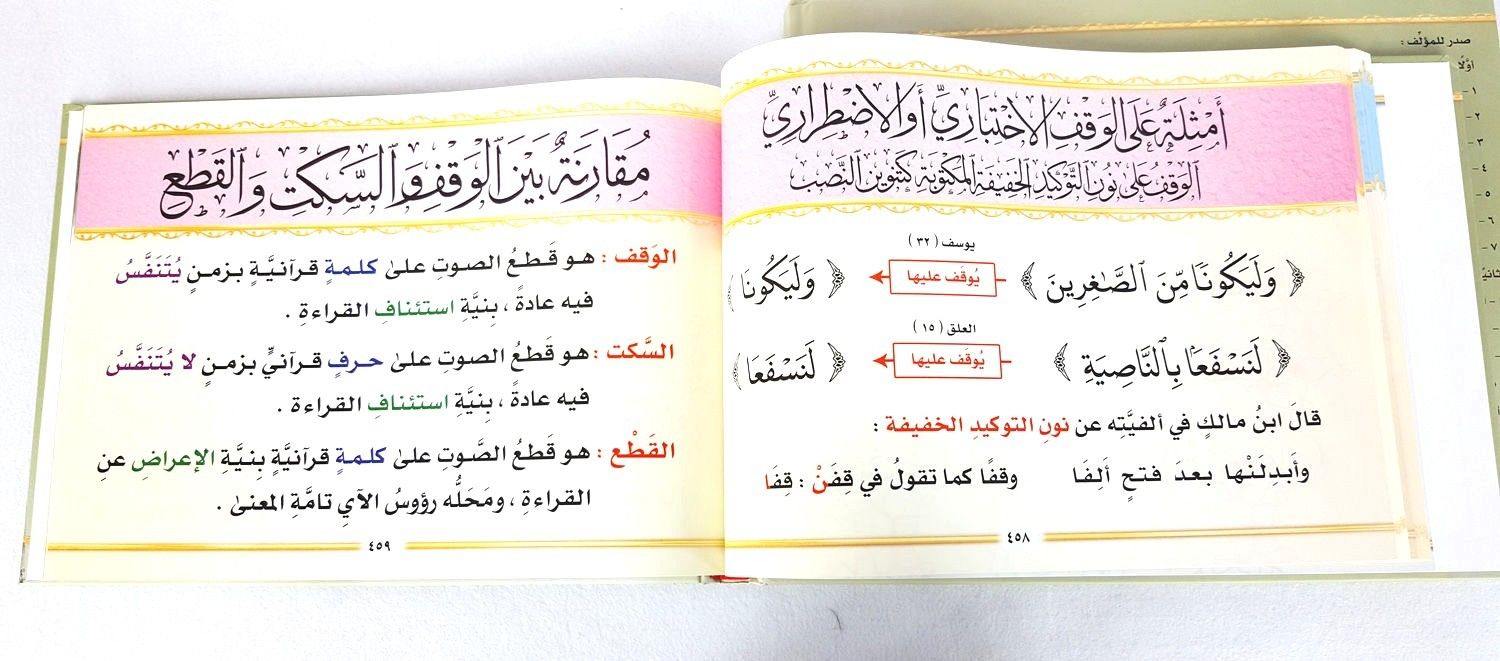 أَمْثِلَةٌ عَلَى الْوَقْفِ الِاخْتِبَارِيِّ أَوِ الِاضْطِرَارِيِّ
الْوَقْفُ عَلَى نُونِ التَّوْكِيدِ الْخَفِيفَةِ الْمَكْتُوبَةِ كَتَنْوِينِ النَّصْبِ
يوسف ( ٣٢ )
﴿ وَلَيَكُونًا مِّنَ ٱلصَّٰغِرِينَ ﴾ يُوقَف عليها ﴿ وَلَيَكُونَا ﴾
العلق ( ١٥ )
﴿ لَنَسْفَعًۢا بِٱلنَّاصِيَةِ ﴾ يُوقَف عليها ﴿ لَنَسْفَعَا ﴾
قالَ ابنُ مالكٍ في ألفيَّتِه عن نونِ التوكيدِ الخفيفة :
وأَبدِلَنْها بعدَ فتحٍ ألِفَا وقفًا كما تقولُ في قِفَنْ : قِفَا
٤٥٨
مُقَارَنَةٌ بَيْنَ الْوَقْفِ وَالسَّكْتِ وَالْقَطْعِ
الوَقف : هو قَطعُ الصوتِ علىٰ كلمةٍ قرآنيَّةٍ بزمنٍ يُتَنَفَّسُ
فيه عادةً ، بِنيَّةِ استئنافِ القراءةِ .
السَّكت : هو قَطعُ الصوتِ علىٰ حرفٍ قرآنيٍّ بزمنٍ لا يُتَنَفَّسُ
فيه عادةً ، بِنيَّةِ استئنافِ القراءة .
القَطْع : هو قَطعُ الصَّوتِ علىٰ كلمةٍ قرآنيَّةٍ بِنيَّةِ الإعراضِ عنِ
القراءةِ ، ومَحَلُّه رؤوسُ الآيِ تامَّةِ المعنىٰ .
٤٥٩
صدر للمؤلِّف :
أوَّلًا
١-
٢-
٣-
٤-
٥-
٦-
٧-